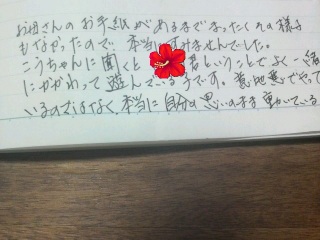 お母さんのお手紙があるまでまったくその様子
もなかったので 本当にすみませんでした。
こうちゃんに聞くと 君ということでよく一緒
にかかわって遊んでいるようです。意地悪でやって
いるのではなく、本当に自分の思いのまま動いている